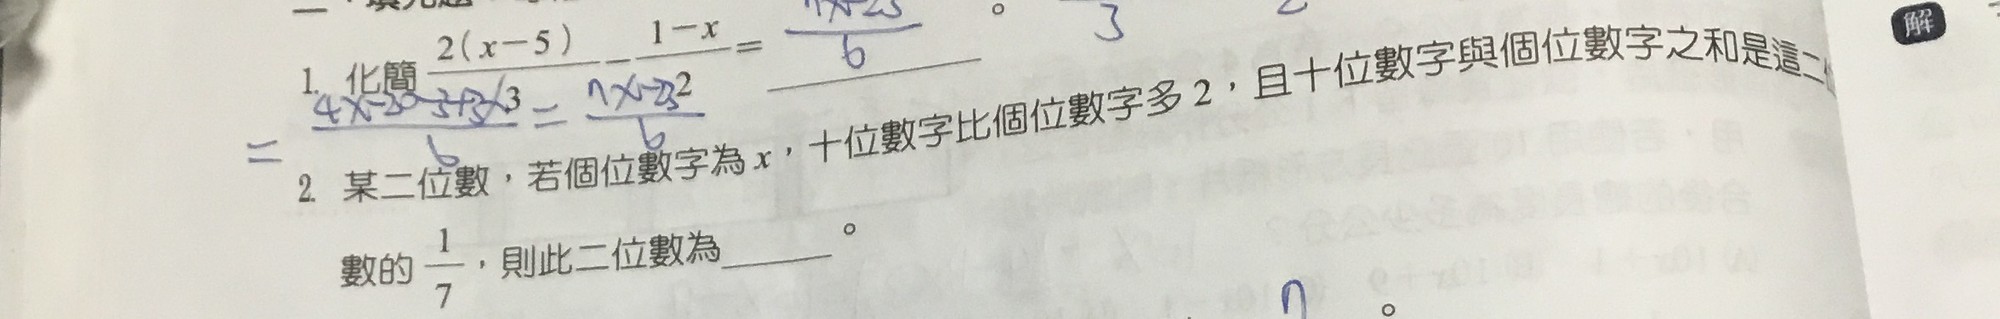 1. 化簡 2(x-5)/3 - (1-x)/2 = (7x-23)/6 。
= (4x-20-3+3x)/6 = (7x-23)/6
2. 某二位數，若個位數字為 x，十位數字比個位數字多 2，且十位數字與個位數字之和是這二
數的 1/7，則此二位數為______。
7 。
3
解